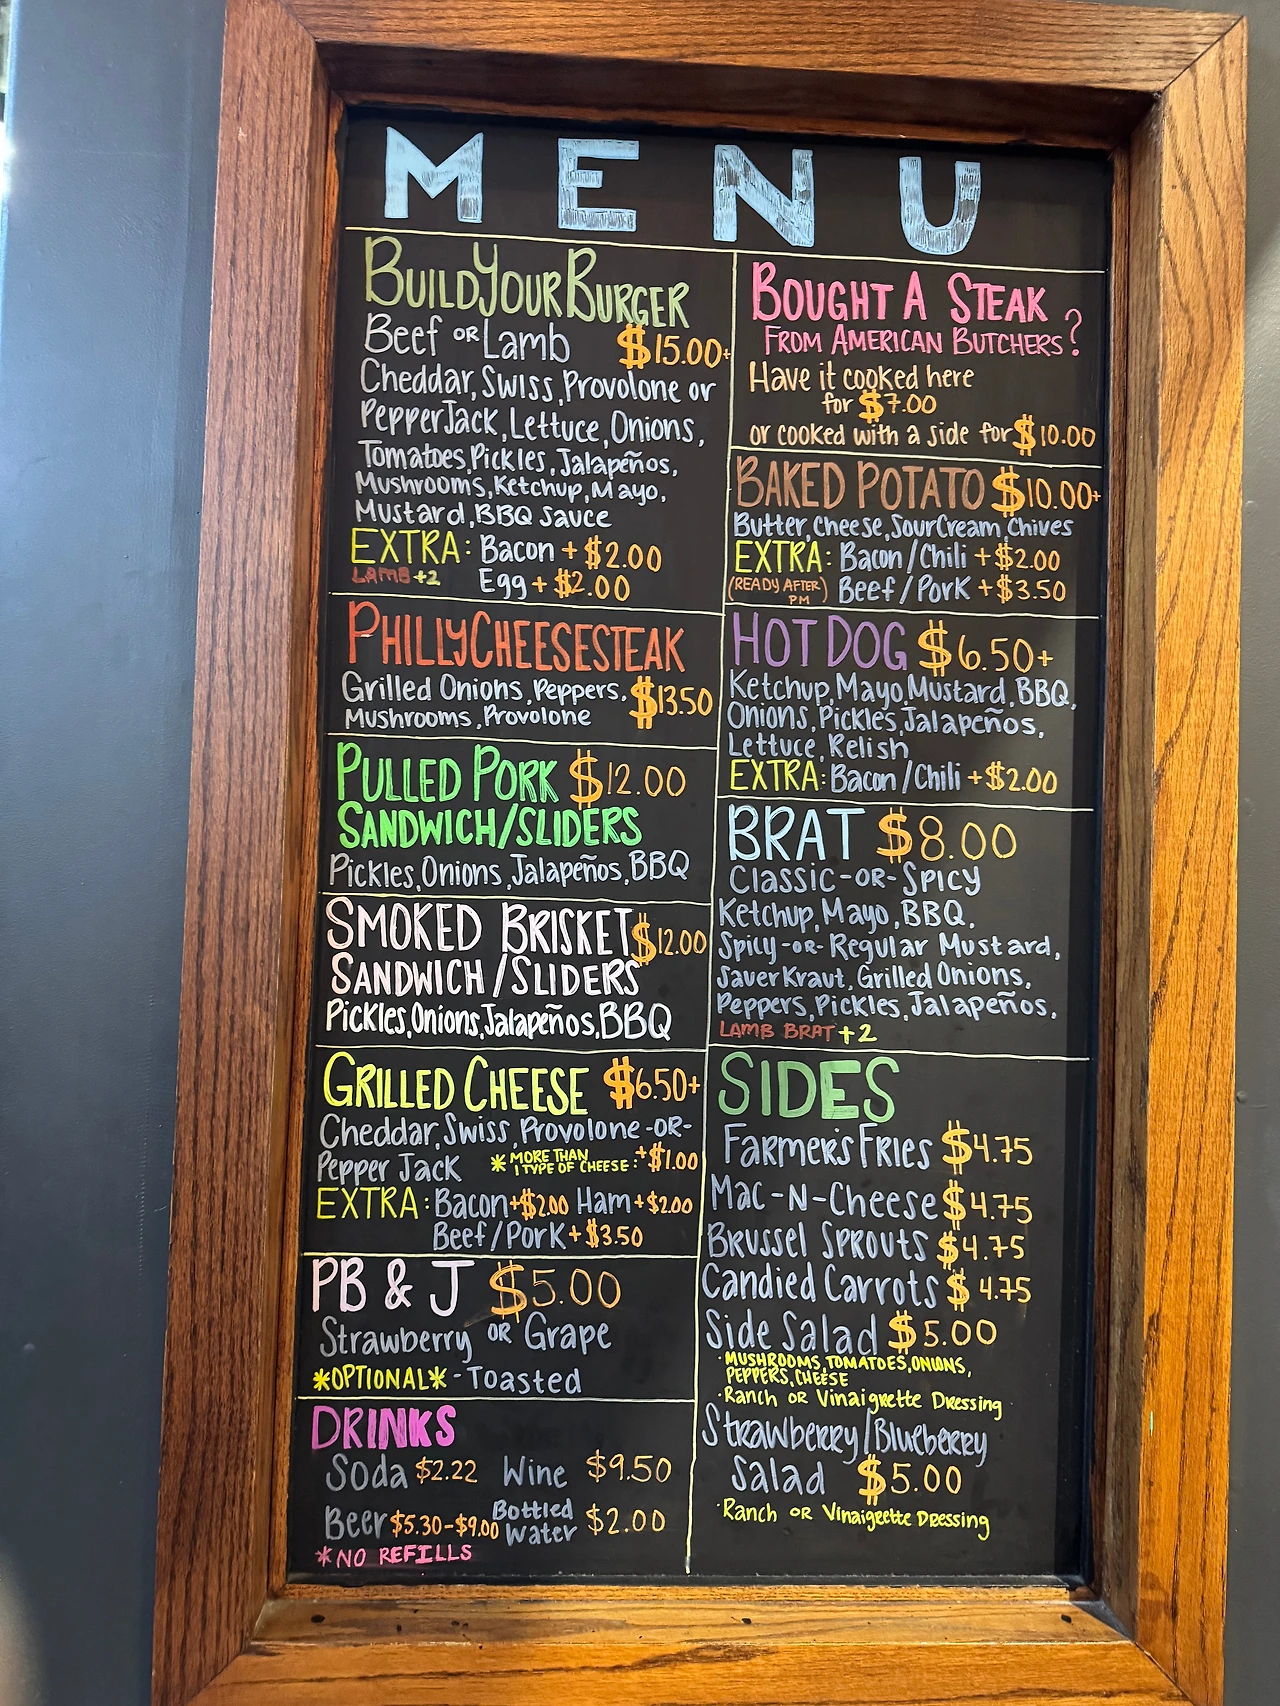 MENU
BUILD YOUR BURGER
Beef OR Lamb $15.00+
Cheddar, Swiss, Provolone or
Pepper Jack, Lettuce, Onions,
Tomatoes, Pickles, Jalapeños,
Mushrooms, Ketchup, Mayo,
Mustard, BBQ Sauce
EXTRA: Bacon + $2.00
LAMB +2 Egg + $2.00
PHILLY CHEESESTEAK
Grilled Onions, Peppers, $13.50
Mushrooms, Provolone
PULLED PORK $12.00
SANDWICH/SLIDERS
Pickles, Onions, Jalapeños, BBQ
SMOKED BRISKET $12.00
SANDWICH/SLIDERS
Pickles, Onions, Jalapeños, BBQ
GRILLED CHEESE $6.50+
Cheddar, Swiss, Provolone -OR-
Pepper Jack * MORE THAN
1 TYPE OF CHEESE: +$1.00
EXTRA: Bacon +$2.00 Ham +$2.00
Beef/Pork + $3.50
PB & J $5.00
Strawberry OR Grape
*OPTIONAL* - Toasted
DRINKS
Soda $2.22 Wine $9.50
Beer $5.30-$9.00 Bottled Water $2.00
*NO REFILLS
BOUGHT A STEAK
FROM AMERICAN BUTCHERS?
Have it cooked here
for $7.00
or cooked with a side for $10.00
BAKED POTATO $10.00+
Butter, Cheese, Sour Cream, Chives
EXTRA: Bacon/Chili +$2.00
(READY AFTER PM) Beef/Pork +$3.50
HOT DOG $6.50+
Ketchup, Mayo, Mustard, BBQ,
Onions, Pickles, Jalapeños,
Lettuce, Relish
EXTRA: Bacon/Chili +$2.00
BRAT $8.00
Classic -OR- Spicy
Ketchup, Mayo, BBQ,
Spicy -OR- Regular Mustard,
SauerKraut, Grilled Onions,
Peppers, Pickles, Jalapeños,
LAMB BRAT +2
SIDES
FARMER'S FRIES $4.75
Mac-N-Cheese $4.75
Brussel Sprouts $4.75
Candied Carrots $4.75
Side Salad $5.00
·MUSHROOMS, TOMATOES, ONIONS,
PEPPERS, CHEESE
·Ranch OR Vinaigrette Dressing
Strawberry/Blueberry
Salad $5.00
·Ranch OR Vinaigrette Dressing